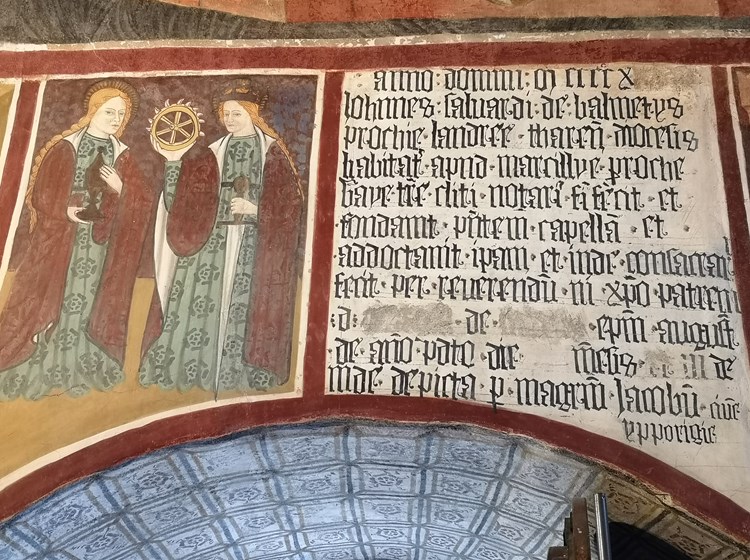 anno · domini · m cccc x
Iohnnes · saluardi · de · balmetys
prochie · landree · tharen̄ · diocesis
habitat̄ · apud · marcillye · prochie
Gaye · tr̄e · cliti · notari⁹ · fi fecit · et
fondauit · pn̄tem · capellā · et ·
addoctauit · ipam · et · inde · consacrar
fecit · per · reuerendū · in · xp̄o · patrem
: d · de · ep̄m · august̄
· de · ān̄o · p̄dto · die m̄esis · et · III de
inde · depicta · p̱ · magrm̄ · Jacobū · ciue
ypporigie